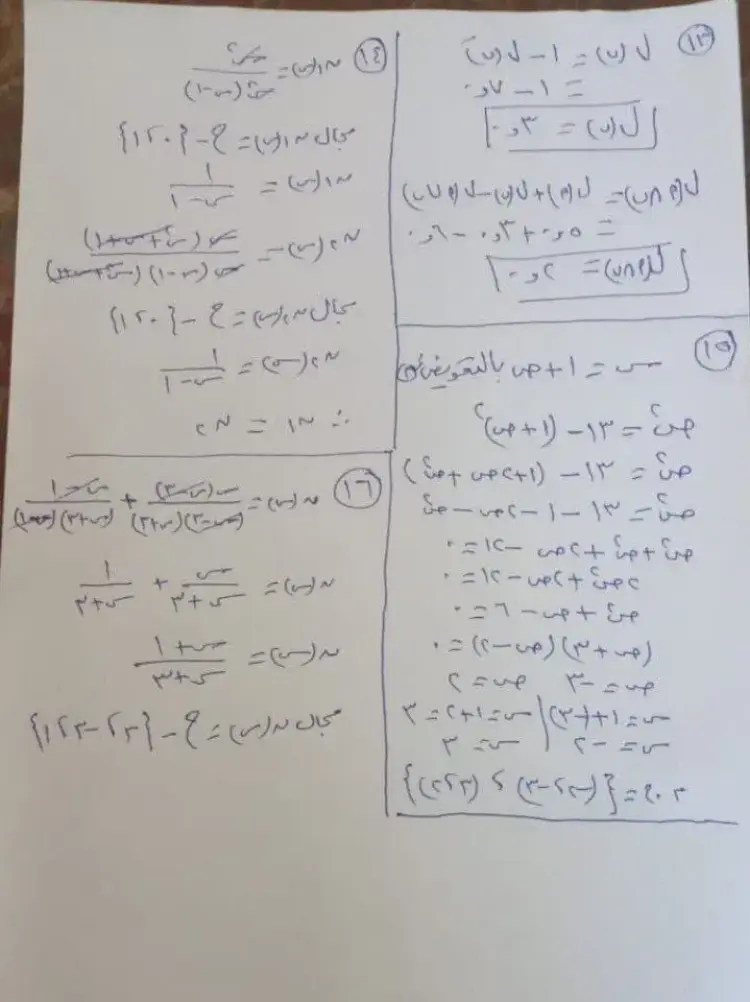 ١٣
ل(ب) = ١ − ل(بَ)
= ١ − ٠,٧
ل(ب) = ٠,٣
ل(P∩ب) = ل(P) + ل(ب) − ل(P∪ب)
= ٠,٥ + ٠,٣ − ٠,٦
ل(P∩ب) = ٠,٢
١٤
ن١(س) = س٢ / س٢(س−١)
مجال ن١(س) = ح − {٠، ١}
ن١(س) = ١ / (س−١)
ن٢(س) = س(س٢+س+١) / س(س−١)(س٢+س+١)
مجال ن٢(س) = ح − {٠، ١}
ن٢(س) = ١ / (س−١)
∴ ن١ = ن٢
١٥
س = ١ + ص بالتعويض
ص٢ = ١٣ − (١+ص)٢
ص٢ = ١٣ − (١+٢ص+ص٢)
ص٢ = ١٣ − ١ − ٢ص − ص٢
ص٢ + ص٢ + ٢ص − ١٢ = ٠
٢ص٢ + ٢ص − ١٢ = ٠
ص٢ + ص − ٦ = ٠
(ص+٣)(ص−٢) = ٠
ص = −٣ ص = ٢
س = ١+(−٣) | س = ١+٢ = ٣
س = −٢ س = ٣
م.ح = {(−٢، −٣)، (٣، ٢)}
١٦
ن(س) = س(س−٣) / (س−٣)(س+٣) + س−١ / (س+٣)(س−١)
ن(س) = س / (س+٣) + ١ / (س+٣)
ن(س) = س+١ / س+٣
مجال ن(س) = ح − {٣، −٣، ١}